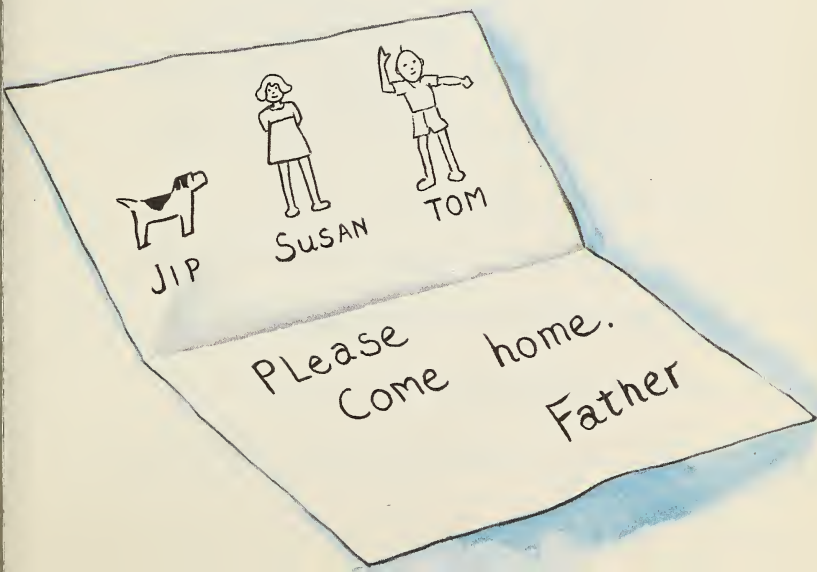 JIP
SUSAN
TOM
PLease
Come home.
Father